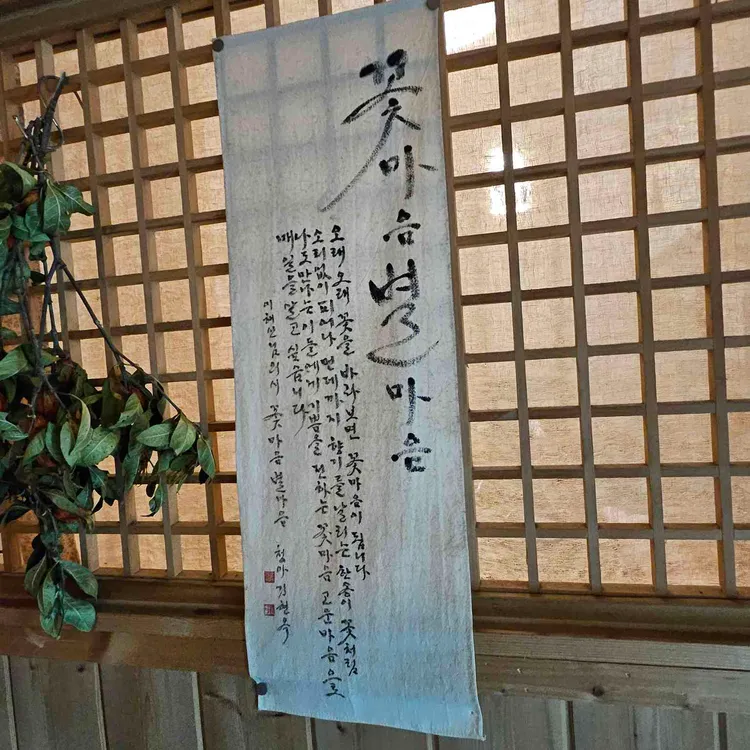 꽃마음별마음
오래 오래 꽃을 바라보면 꽃마음이 됩니다
소리없이 피어나 먼데까지 향기를 날리는 한송이 꽃처럼
나도 만나는 이들에게 기쁨을 전하는 꽃마음 고운마음으로
매일을 살고 싶습니다
이해인님의시 꽃마음 별마음 청아 김현우